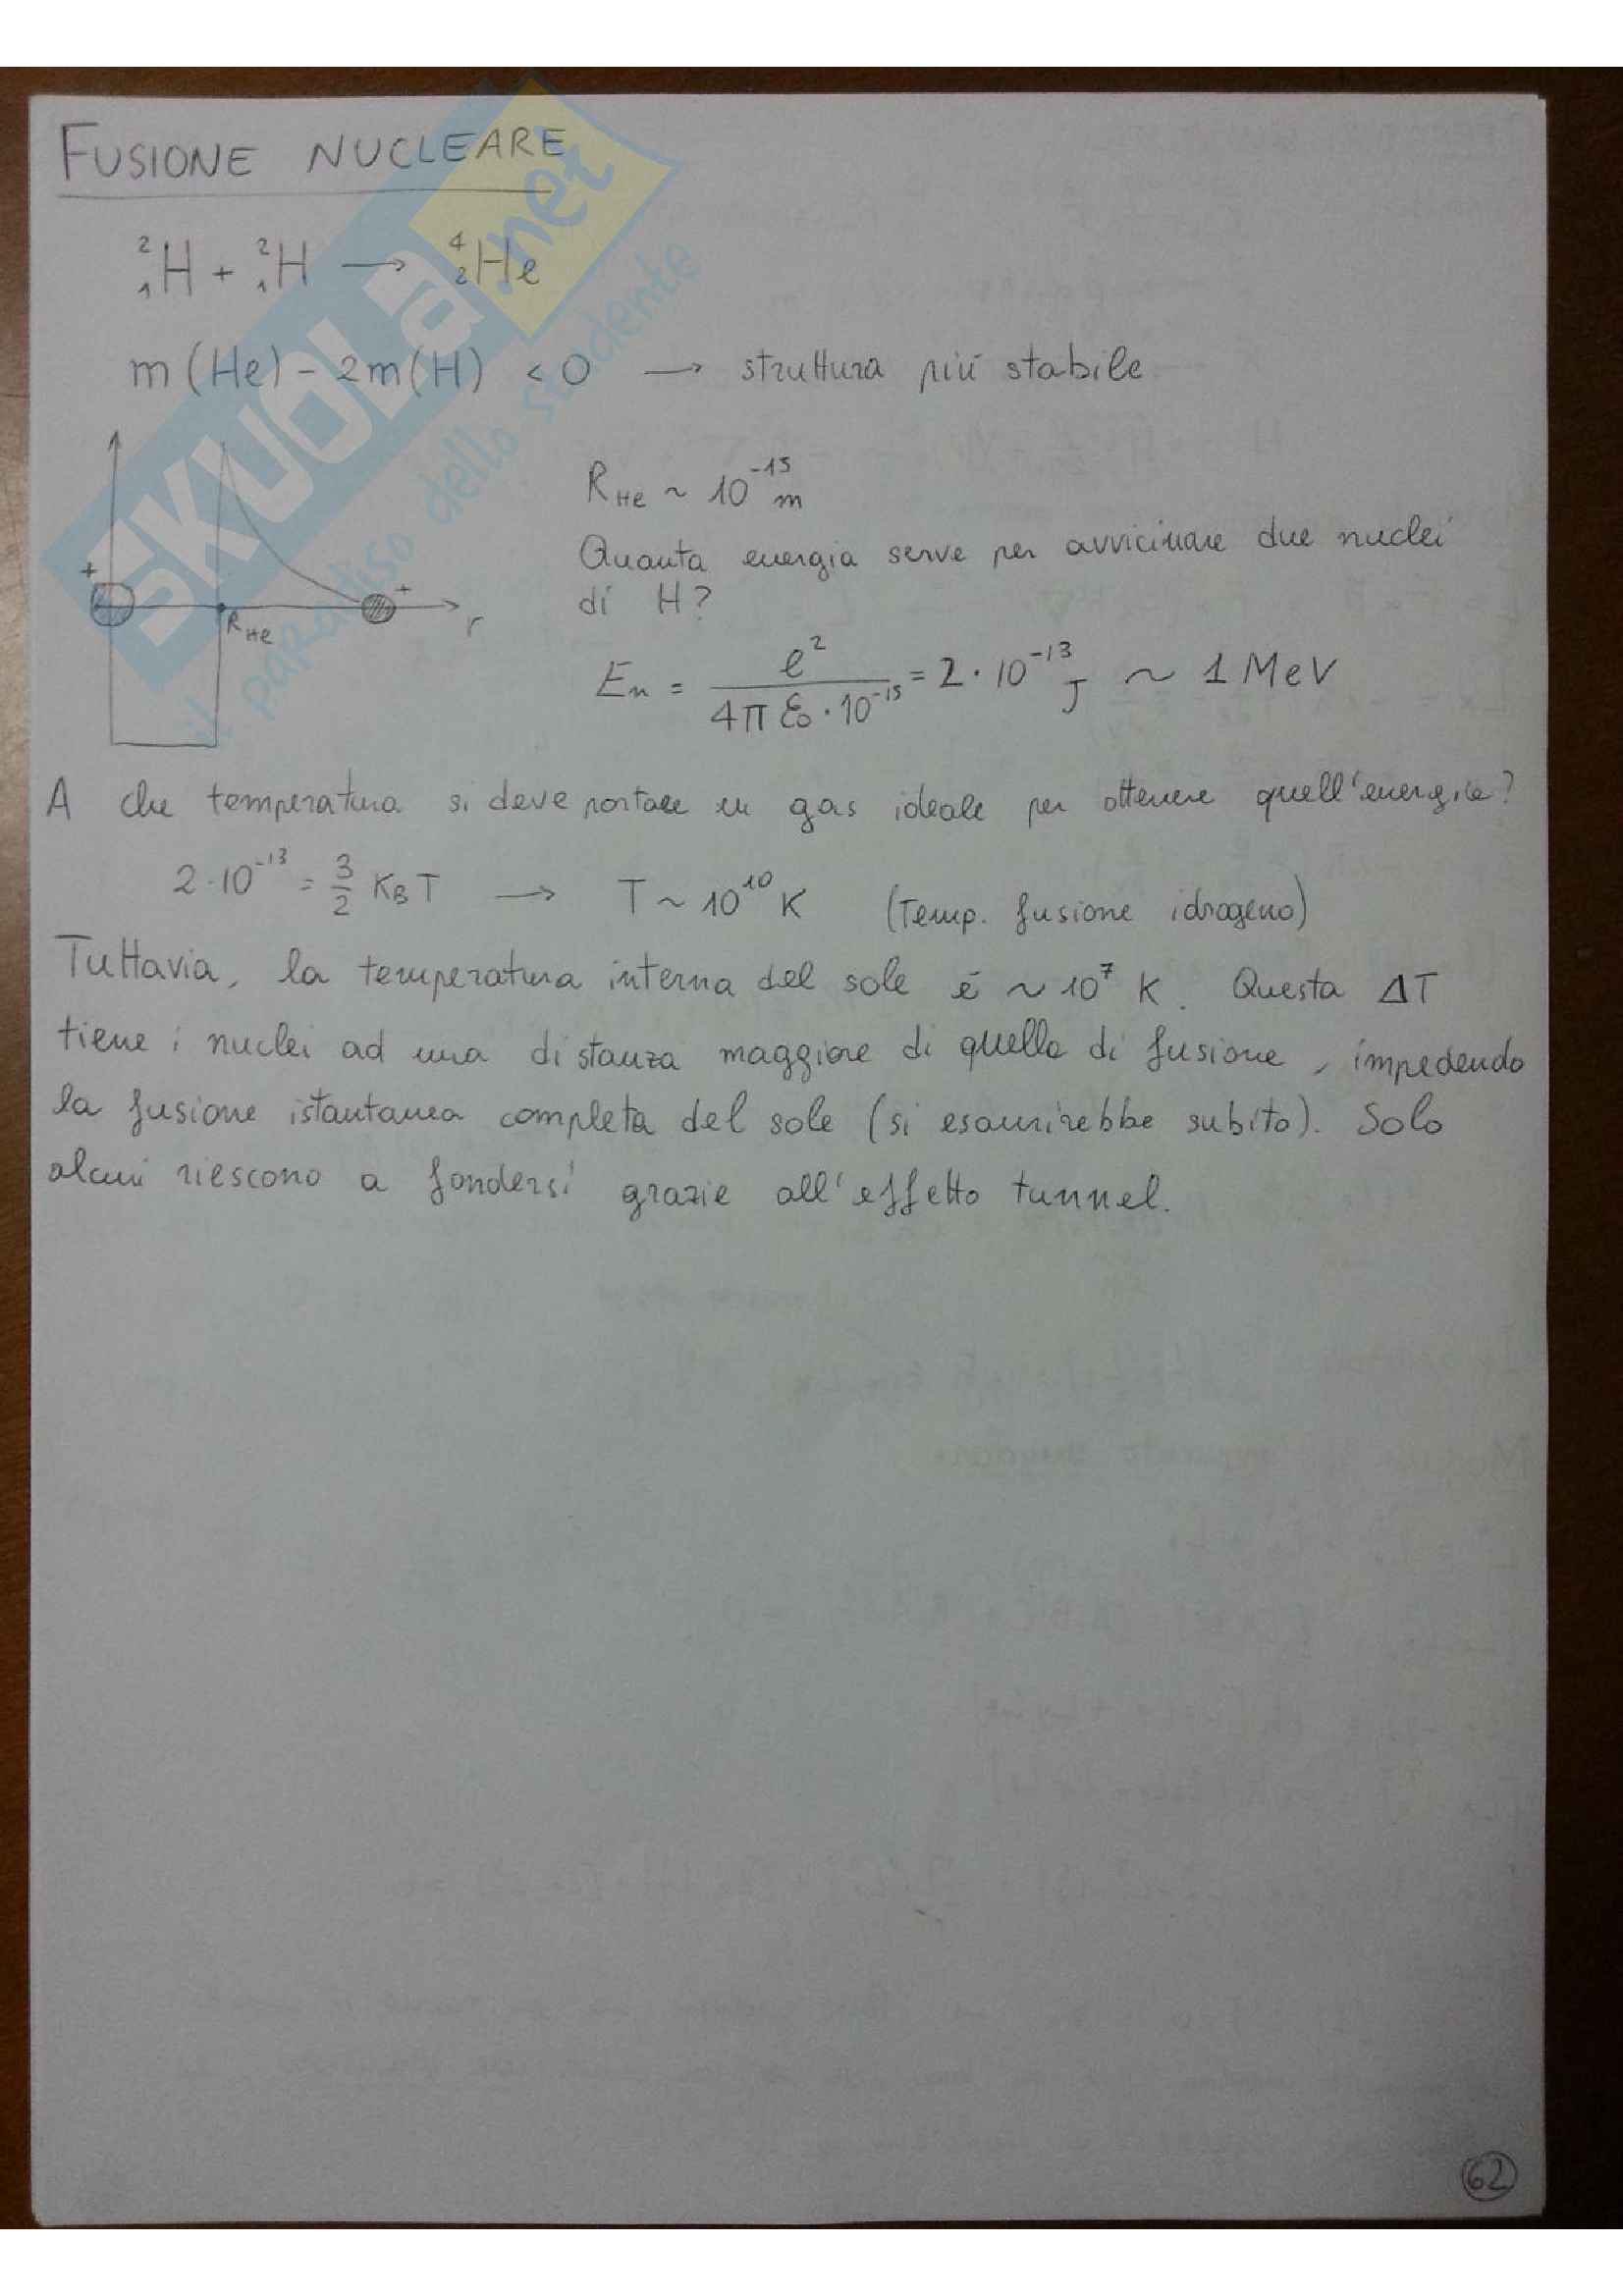 FUSIONE NUCLEARE
²₁H + ²₁H → ⁴₂He
m(He) - 2m(H) < 0 → struttura più stabile
R_He ~ 10⁻¹⁵ m
Quanta energia serve per avvicinare due nuclei
di H?
+ + R_He r
E_n = e² / (4π ε₀ · 10⁻¹⁵) = 2 · 10⁻¹³ J ~ 1 MeV
A che temperatura si deve portare un gas ideale per ottenere quell'energia?
2 · 10⁻¹³ = 3/2 K_B T → T ~ 10¹⁰ K (Temp. fusione idrogeno)
Tuttavia, la temperatura interna del sole è ~ 10⁷ K. Questa ΔT
tiene i nuclei ad una distanza maggiore di quella di fusione, impedendo
la fusione istantanea completa del sole (si esaurirebbe subito). Solo
alcuni riescono a fondersi grazie all'effetto tunnel.
62
SKUOLA.net
il paradiso dello studente